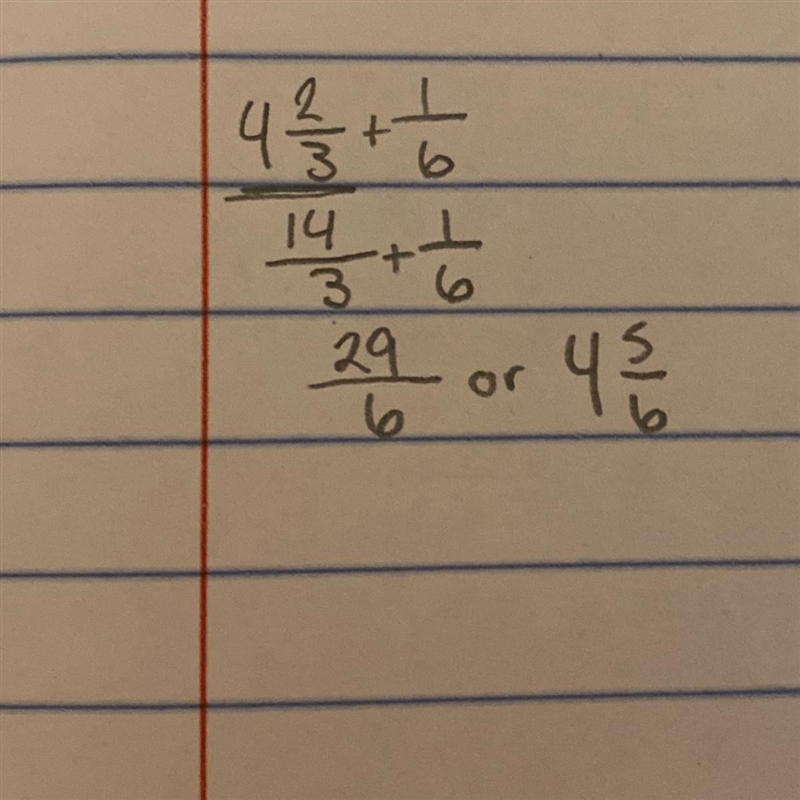 4 2/3 + 1/6
14/3 + 1/6
29/6 or 4 5/6